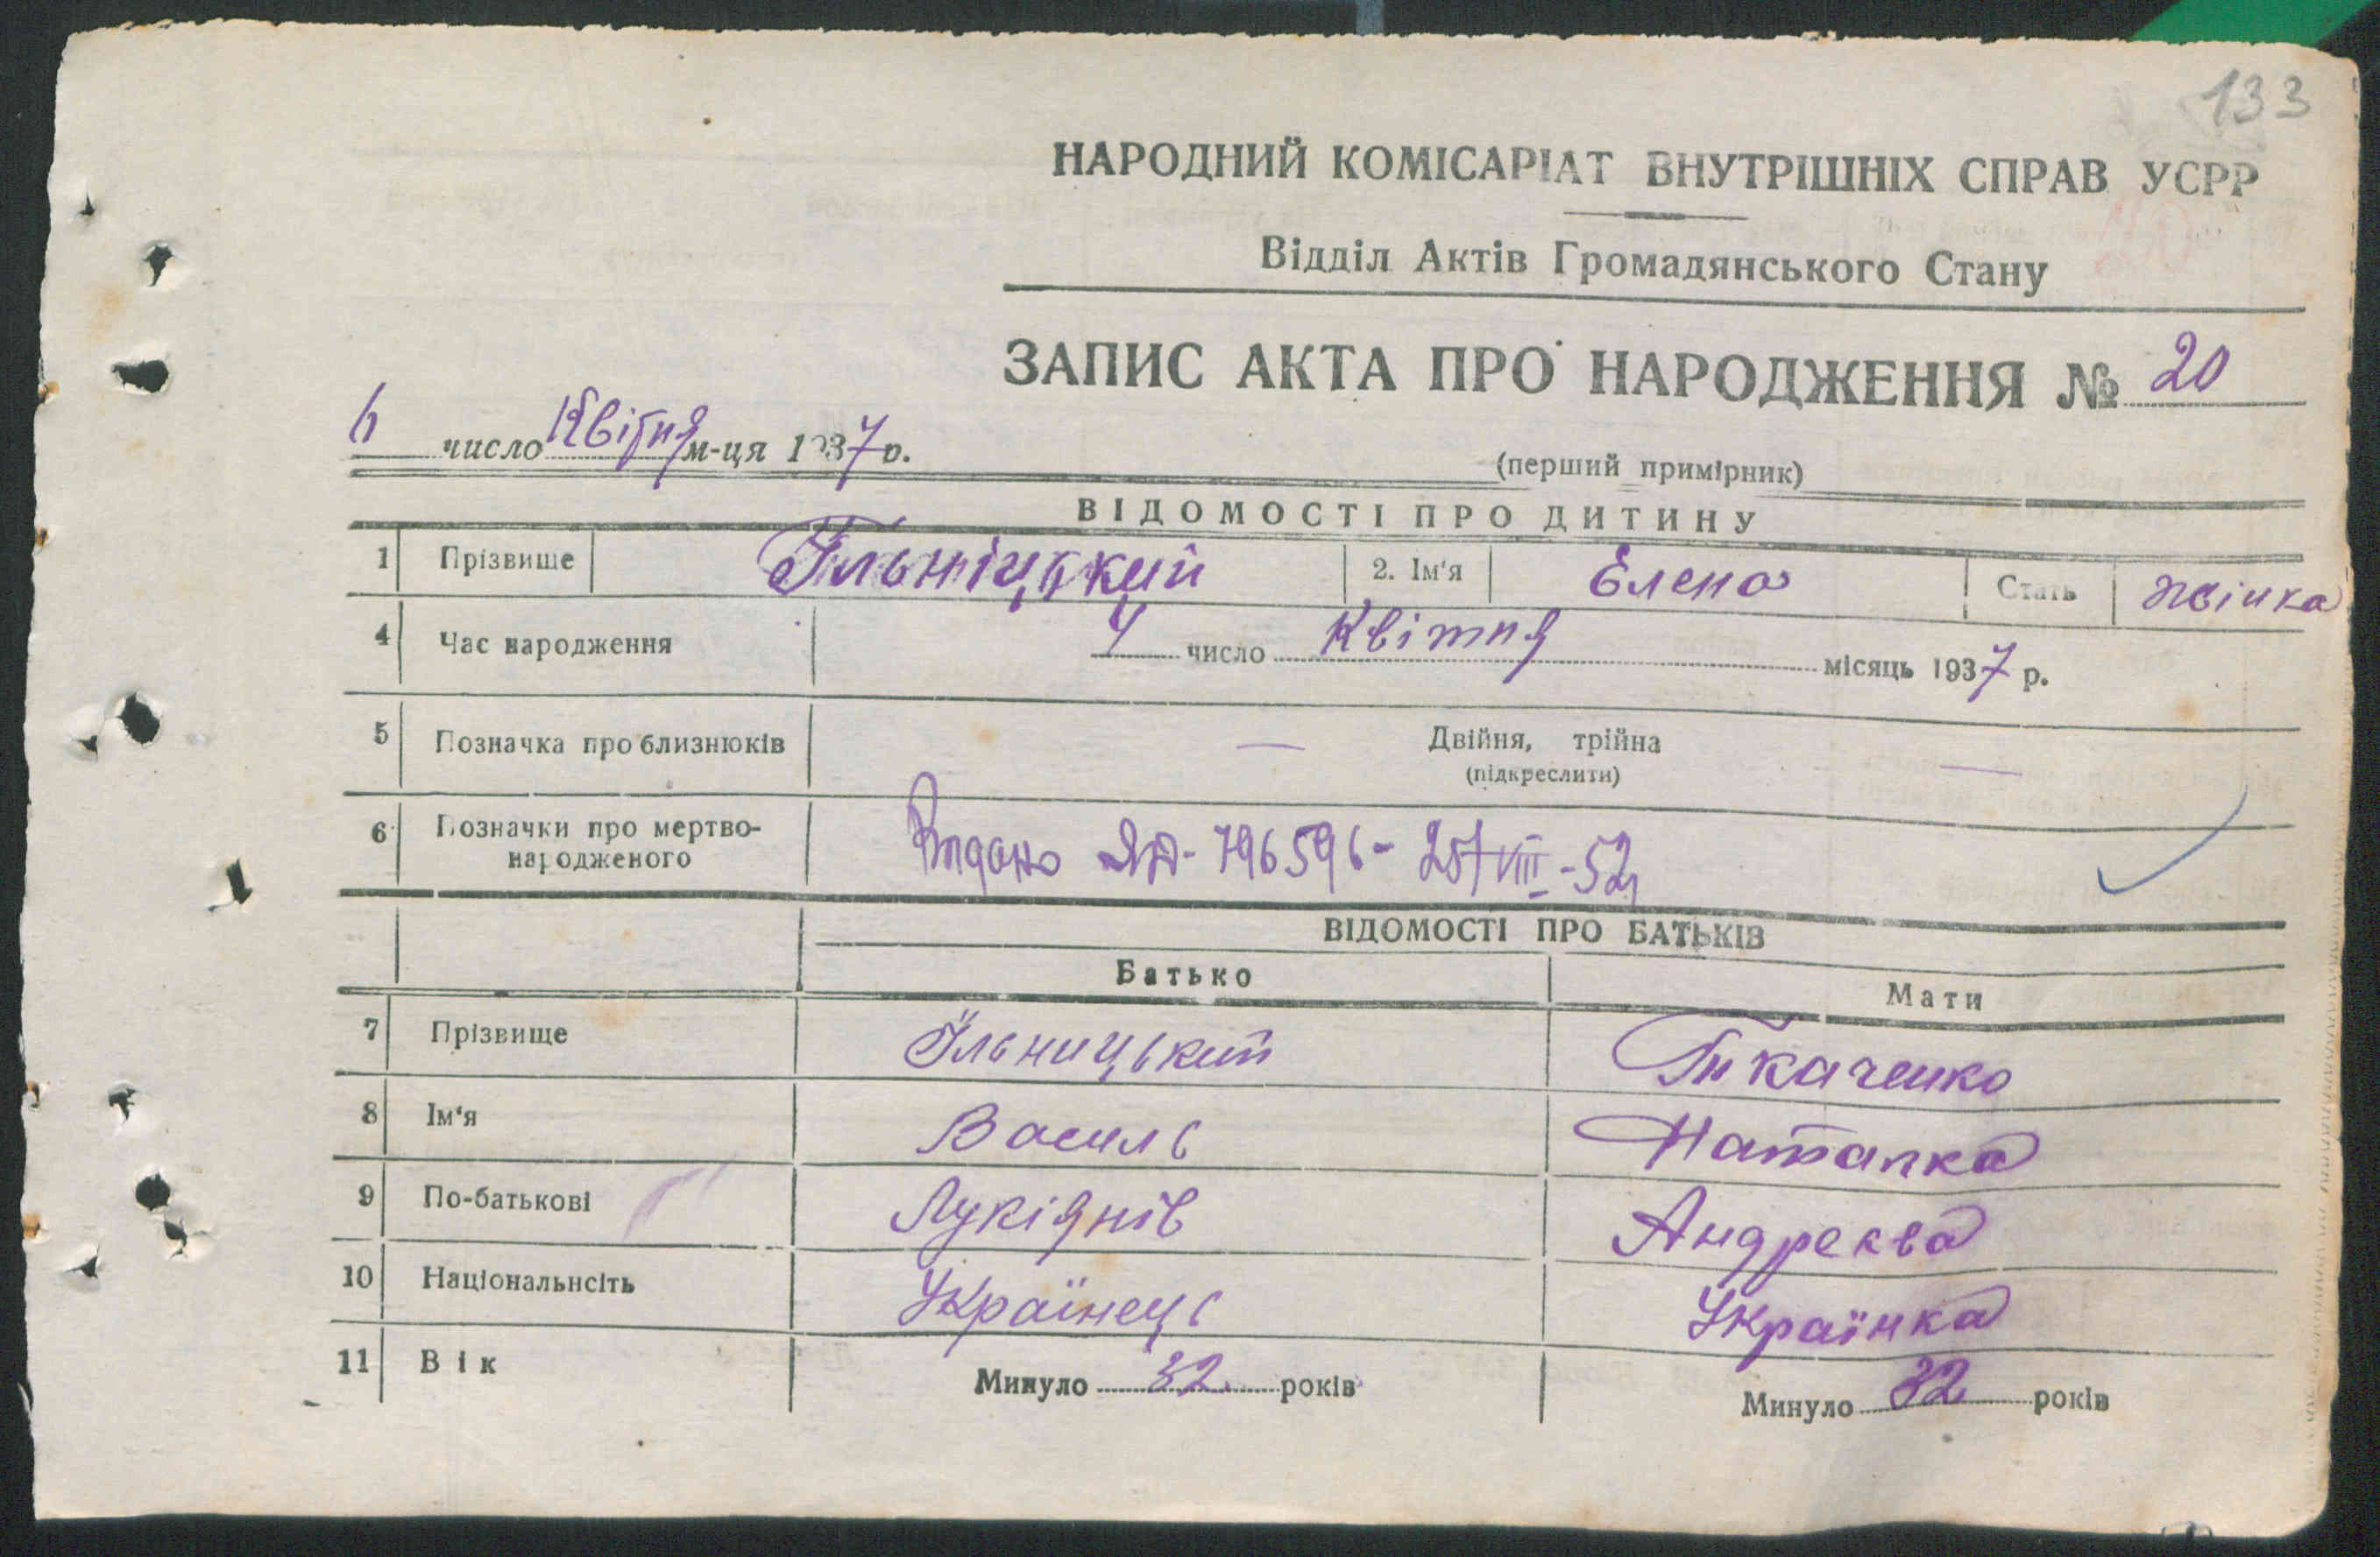 133
НАРОДНИЙ КОМІСАРІАТ ВНУТРІШНІХ СПРАВ УСРР
Відділ Актів Громадянського Стану
ЗАПИС АКТА ПРО НАРОДЖЕННЯ № 20
6 число Квітня м-ця 1937 р.
(перший примірник)
ВІДОМОСТІ ПРО ДИТИНУ
1 Прізвище Ільніцький 2. Ім'я Елена Стать жінка
4 Час народження 4 число Квітня місяць 1937 р.
5 Позначка про близнюків — Двійня, трійна —
(підкреслити)
6 Позначки про мертво-
народженого
Видано ЯД- 796596- 25/VIII-52
ВІДОМОСТІ ПРО БАТЬКІВ
Батько Мати
7 Прізвище Ільницький Ткаченко
8 Ім'я Василь Наталка
9 По-батькові Лукіянів Андреєва
10 Національнсіть Українець Українка
11 Вік Минуло 32 років Минуло 32 років